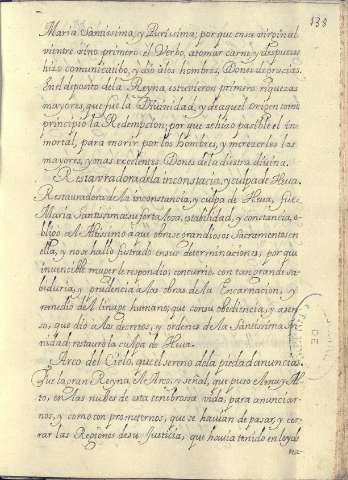 138
Maria Santissima, y Purissima; porque en su virginal
vientre vino primero el Verbo, a tomar carne, y despues se
hizo comunicatibo, y dió a los hombres, Dones de gracias.
En el deposito de la Reyna estuvieron primero riquezas
mayores, que fue la Divinidad, y de aquel origen tomó
principio la Redempcion; por que se hizo pasible el in-
mortal, para morir por los hombres, y merecerles las
mayores, y mas excelentes Dones de la diestra divina.
Restauradora de la inconstacia, y culpa de Heua.
Restauradora de la inconstancia, y culpa de Heua, fue
Maria Santissima su fortaleza, estabilidad, y constancia,
bligo al Altissimo a que obrase grandiosos Sacramentos en
ella, y no se halló frustado en sus determinaciones, por que
invencible muger le respondio; concurrió con tan grande sa-
biduria, y prudencia a las obras de la Encarnacion, y
remedio del linage humano, que con su obediencia, y asen-
so, que dió a los decretos, y ordenes de la Santissima Tri-
nidad, restauró la culpa de Heua.
Arco del Cielo, que el sereno de la piedad anuncias.
Fue la gran Reyna, el Arco, y señal, que puso el muy Al-
to, en las nubes de esta tenebrosa vida, para anunciar-
nos, y como con prometernos, que se havian de pasar, y cer-
rar las Regiones de su Justicia, que havia tenido en los